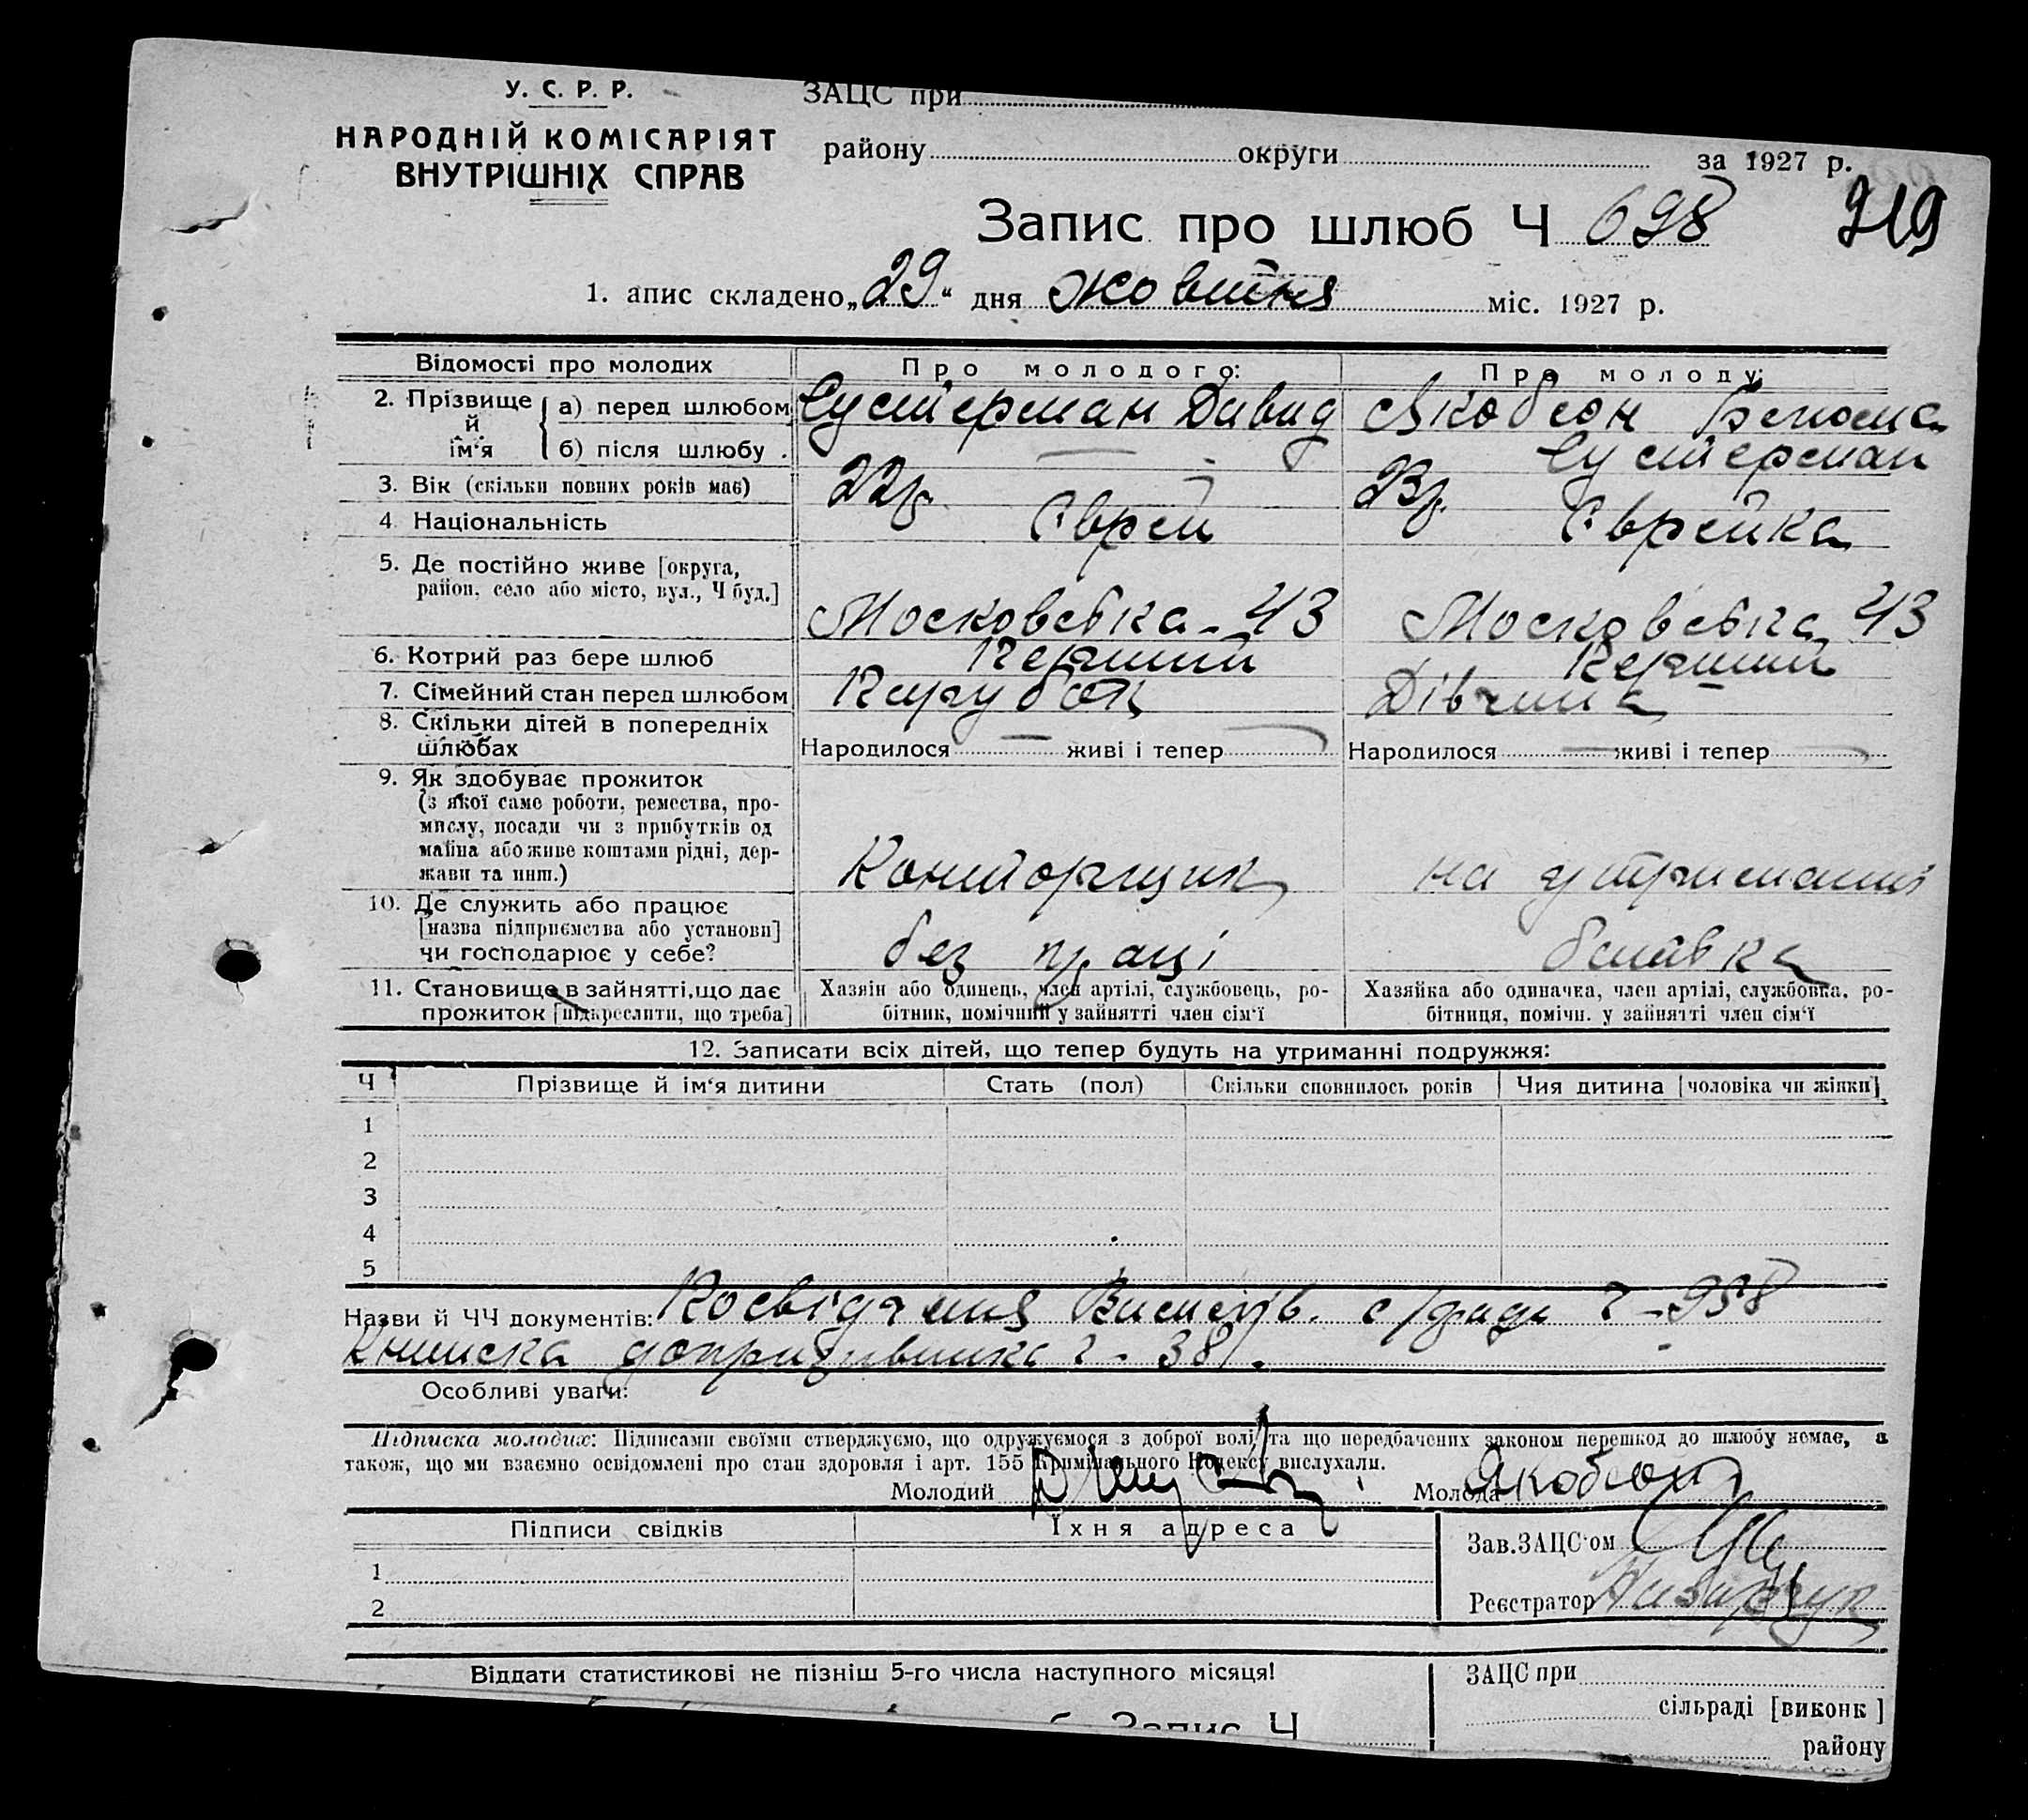 У. С. Р. Р.
НАРОДНІЙ КОМІСАРІЯТ
ВНУТРІШНІХ СПРАВ
ЗАЦС при
району округи за 1927 р.
Запис про шлюб Ч 698 719
1. апис складено „29“ дня жовтня міс. 1927 р.
Відомості про молодих Про молодого: Про молоду:
2. Прізвище й ім'я а) перед шлюбом Сустерман Давид Якобсон
б) після шлюбу . Сустерман
3. Вік (скільки повних років має) 22 р. 23 р.
4. Національність Єврей Єврейка
5. Де постійно живе [округа,
район, село або місто, вул., Ч буд.] Московська - 43 Московська 43
6. Котрий раз бере шлюб Перший Перший
7. Сімейний стан перед шлюбом Парубок Дівчина
8. Скільки дітей в попередніх
шлюбах Народилося — живі і тепер — Народилося — живі і тепер —
9. Як здобуває прожиток
(з якої саме роботи, ремества, про-
мислу, посади чи з прибутків од
майна або живе коштами рідні, дер-
жави та инш.) Конторщик на утриманні
10. Де служить або працює
[назва підприємства або установи]
чи господарює у себе? без праці батька
11. Становище в зайнятті, що дає
прожиток [підкреслити, що треба]
Хазяїн або одинець, член артілі, службовець, ро-
бітник, помічний у зайнятті член сім'ї
Хазяйка або одиначка, член артілі, службовка, ро-
бітниця, помічн. у зайнятті член сім'ї
12. Записати всіх дітей, що тепер будуть на утриманні подружжя:
Ч Прізвище й ім'я дитини Стать (пол) Скільки сповнилось років Чия дитина [чоловіка чи жінки]
1
2
3
4
5
Назви й ЧЧ документів: Посвідчення с/ради ч - 958
Книжка допризивника ч - 381.
Особливі уваги:
Підписка молодих: Підписами своїми стверджуємо, що одружуємося з доброї волі та що передбачених законом перешкод до шлюбу немає, а
також, що ми взаємно освідомлені про стан здоровля і арт. 155 Кримінального Кодексу вислухали.
Молодий Молода Якобсон
Підписи свідків Їхня адреса
1
2
Зав. ЗАЦС'ом
Реєстратор
Віддати статистикові не пізніш 5-го числа наступного місяця!
ЗАЦС при
сільраді [виконк ]
району
Запис Ч